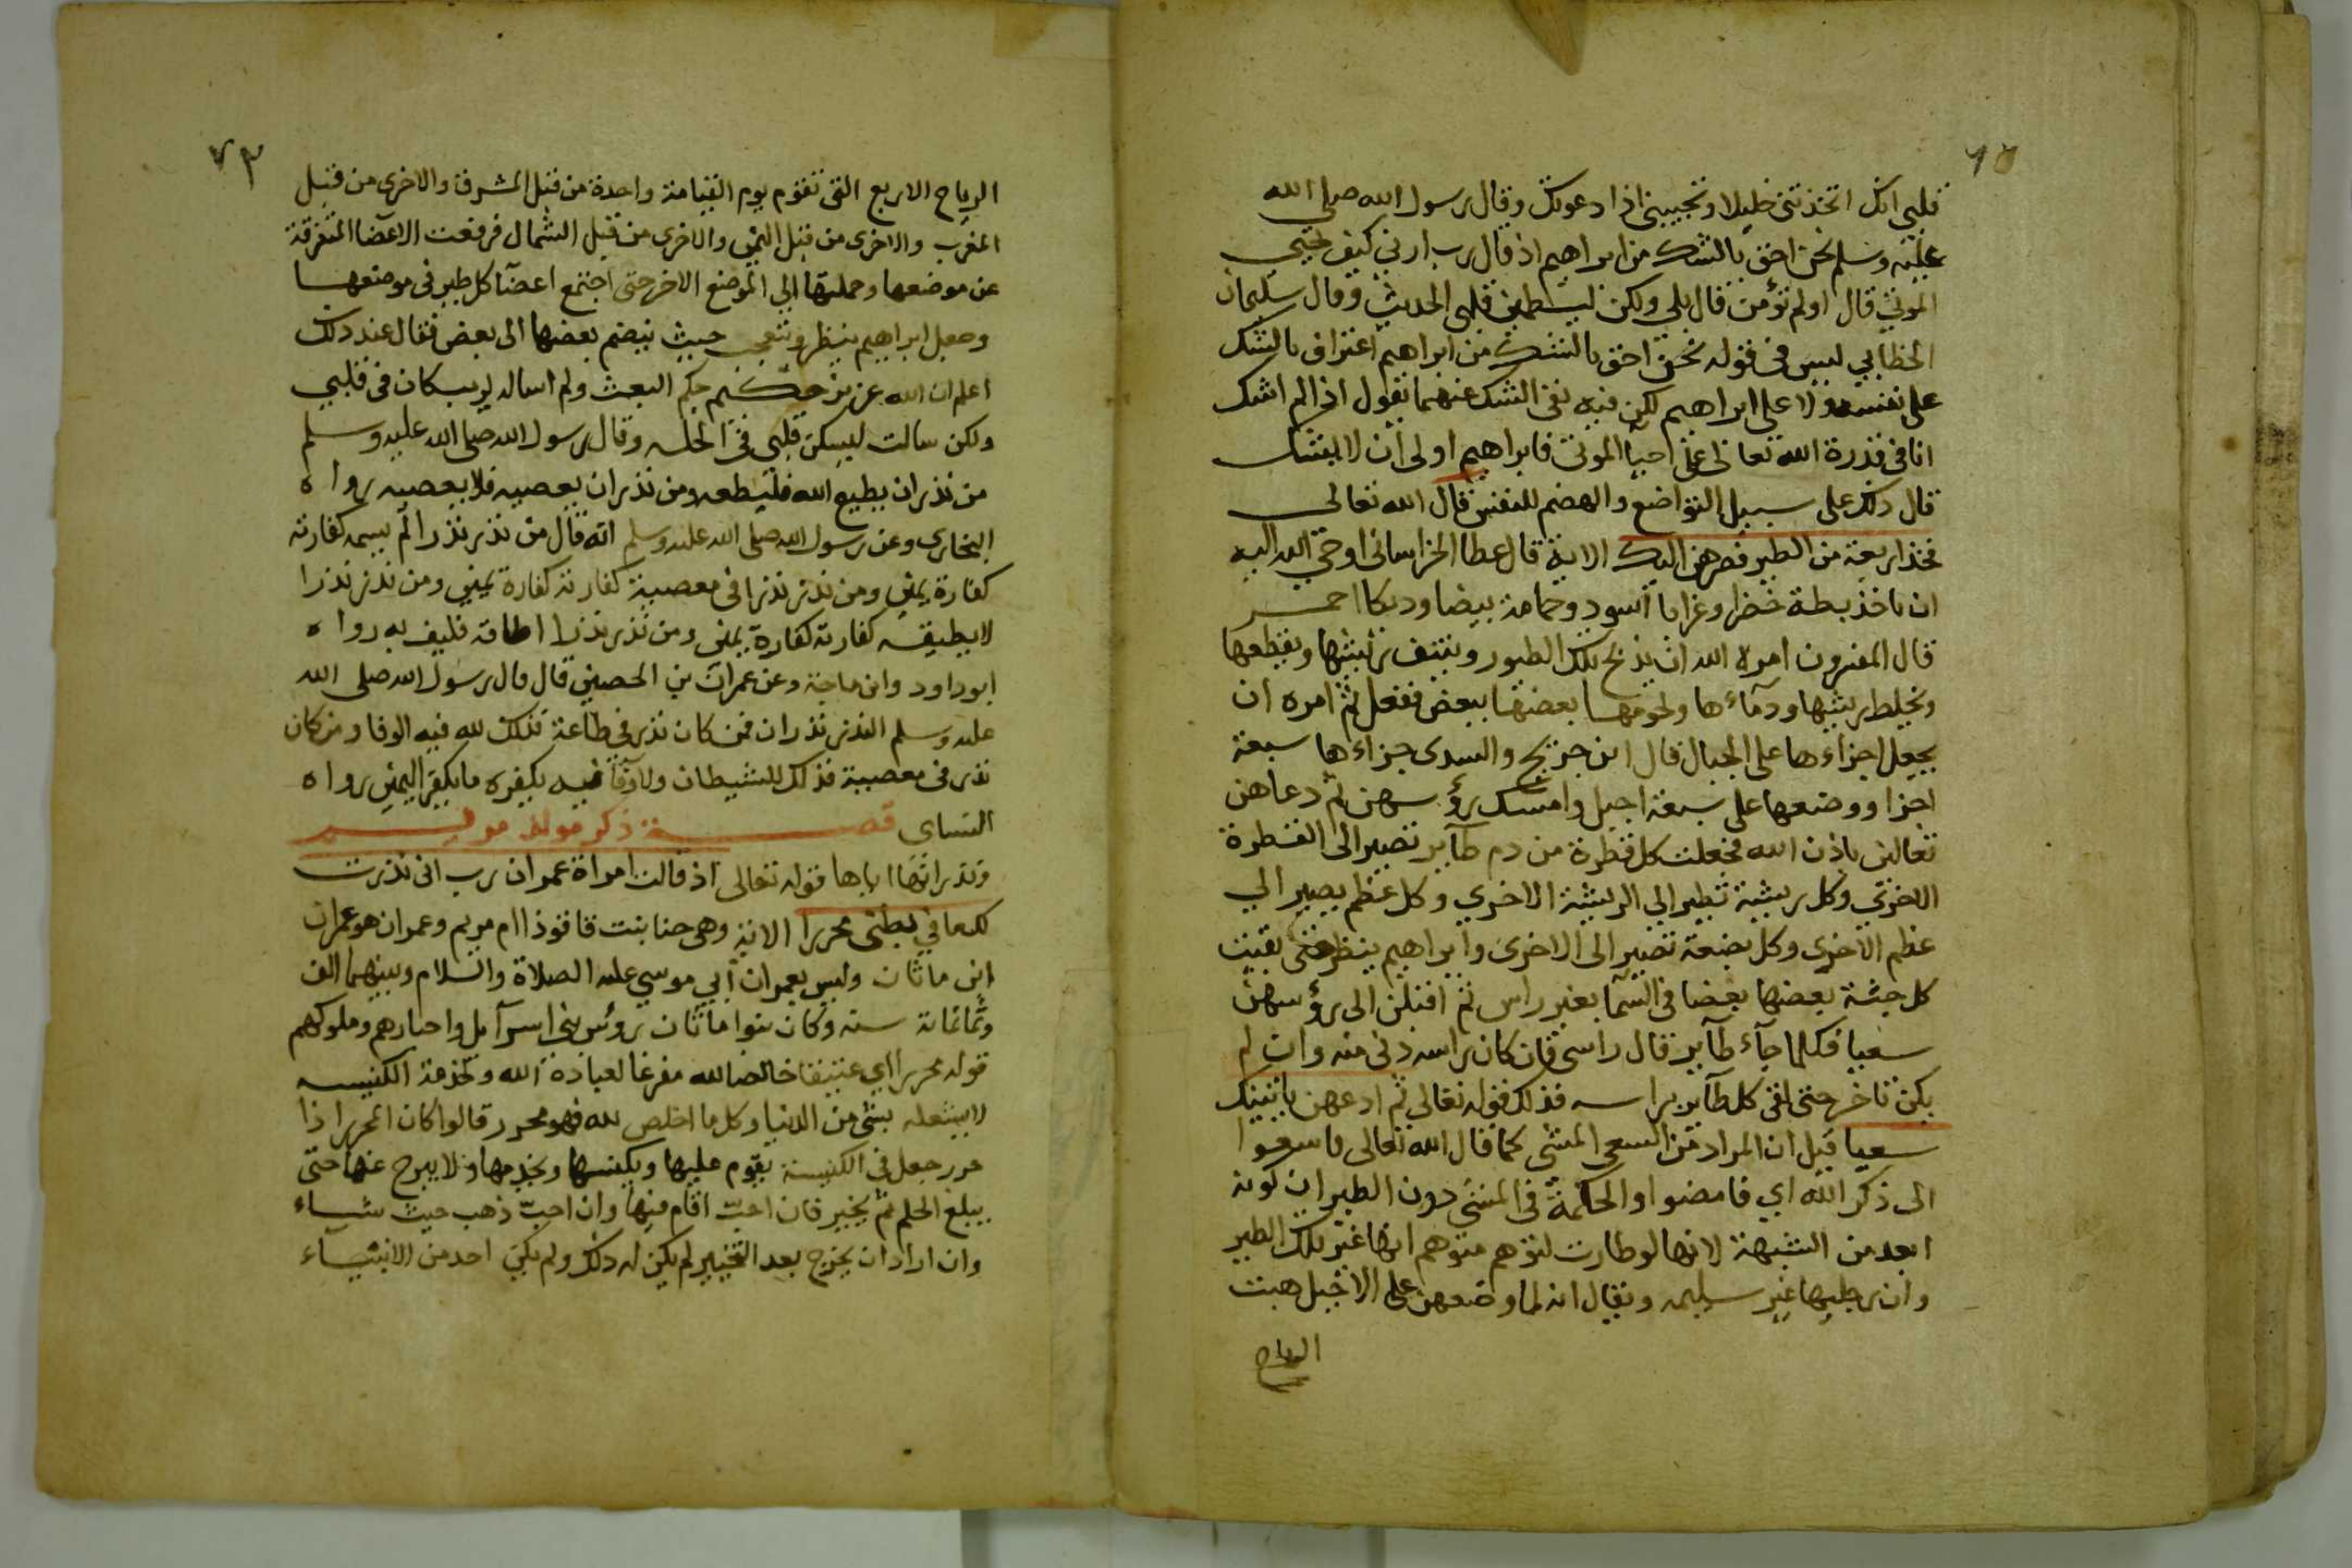 قلبي انك اتخذتني خليلا وتجيبني اذا دعوتك وقال رسول الله صلى الله
عليه وسلم نحن احق بالشك من ابراهيم اذ قال رب ارني كيف تحيي
الموتي قال اولم تؤمن قال بلي ولكن ليطمين قلبي الحديث وقال سليمان
الخطابي ليس في قوله نحن احق بالشك من ابراهيم اعتراف بالشك
على نفسه ولا على ابراهيم لكن فيه نفي الشك عنهما يقول اذا لم اشك
انا في قدرة الله تعالى على احيا الموتى فابراهيم اولى ان لا يشك
قال ذلك على سبيل التواضع والهضم للنفس قال الله تعالى
فخذ اربعة من الطير فصرهن اليك الاية قال عطا الخراساني اوحى الله اليه
ان ياخذ بطة خضرا وغرابا اسود وحمامة بيضا وديكا احمر
قال المفسرون امره الله ان يذبح تلك الطيور وينتف ريشها ويقطعها
ويخلط ريشها ودمآءها ولحومها بعضها ببعض ففعل ثم امره ان
يجعل اجزاءها على الجبال قال ابن جريج والسدى جزاءها سبعة
اجزا ووضعها على سبعة اجبل وامسك رؤسهن ثم دعاهن
تعالين باذن الله فجعلت كل قطرة من دم طآير تصير الى القطرة
الاخرى وكل ريشة تطير الي الريشة الاخري وكل عظم يصير الي
عظم الاخرى وكل بضعة تصير الى الاخرى وابراهيم ينظر حتى بقيت
كل جثة بعضها بعضا في السمآ بغير راس ثم اقبلن الى رؤسهن
سعيا فكلما جآء طآير قال راسي فان كان راسه دنى منه وان لم
يكن تاخر حتى لقى كل طآير براسه فذلك قوله تعالى ثم ادعهن ياتينك
سعيا قيل ان المراد من السعى المشى كما قال الله تعالى فاسعوا
الى ذكر الله اي فامضوا والحكمة في المشي دون الطيران كونه
ابعد من الشبهة لانها لو طارت لتوهم متوهم انها غير تلك الطير
وان رجليها غير سليمه ويقال انه لما وضعهن على الاجبل هبت
الرياح
٧٣
الرياح الاربع التى تقوم يوم القيامة واحدة من قبل المشرق والاخرى من قبل
المغرب والاخرى من قبل اليمن والاخرى من قبل الشمال فرفعت الاعضا المتفرقة
عن موضعها وحملتها الي الموضع الاخر حتى اجتمع اعضآ كل طير في موضعها
وجعل ابراهيم ينظر ويتعجب حيث ينضم بعضها الى بعض فقال عند ذلك
اعلم ان الله عزيز حكيم حكم البعث ولم اساله لريب كان في قلبي
ولكن سالت ليسكن قلبي في وقال رسول الله صلى الله عليه وسلم
من نذر ان يطيع الله فليطعه ومن نذر ان يعصيه فلا يعصيه رواه
البخارى وعن رسول الله صلى الله عليه وسلم انه قال من نذر نذرا لم يسمه كفارته
كفارة يمين ومن نذر نذرا فى معصية كفارته كفارة يمين ومن نذر نذرا
لا يطيقه كفارته كفارة يمين ومن نذر نذرا اطاقه فليف به رواه
ابو داود وابن ماجة وعن عمران بن الحصين قال قال رسول الله صلى الله
عليه وسلم النذر نذران فمن كان نذر في طاعة فذلك لله فيه الوفا ومن كان
نذر فى معصية فذلك للشيطان ولا وفا فيه يكفره ما يكفر اليمين رواه
النساى قصة ذكر مولد مريم
ونذر امها اياها قوله تعالى اذ قالت امراة عمران رب انى نذرت
لك ما في بطنى محررا الاية وهى حنا بنت فاقوذ ام مريم وعمران هو عمران
ابن ماثان وليس بعمران ابي موسي عليه الصلاة والسلام وبينهما الف
وثمانماية سنه وكان بنوا ماثان رؤس بنى اسرآيل واحبارهم وملوكهم
قوله محررا اي عتيقا خالصا لله مفرغا لعبادة الله ولخدمة الكنيسه
لا يشغله بشى من الدنيا وكل ما اخلص لله فهو محرر قالوا كان المحرر اذا
حرر جعل في الكنيسة يقوم عليها ويكنسها ويخدمها ولا يبرح عنها حتى
يبلغ الحلم ثم يخير فان احب اقام فيها وان احب ذهب حيث شاء
وان اراد ان يخرج بعد التخيير لم يكن له ذلك ولم يكن احد من الانبياء